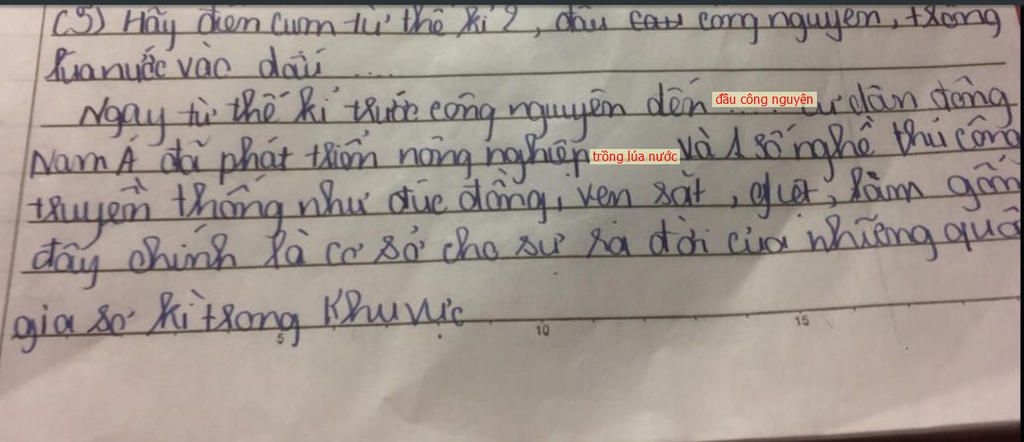 (5) Hãy điền cụm từ thế kỉ 2, đầu công nguyên, trồng
lúa nước vào dấu ....
Ngay từ thế kỉ trước công nguyên đến đầu công nguyên .... cư dân đông
Nam Á đã phát triển nông nghiệp trồng lúa nước và 1 số nghề thủ công
truyền thống như đúc đồng, ren sắt, dệt, làm gốm
đây chính là cơ sở cho sự ra đời của những quố
gia sơ kì trong khu vực
5 10 15